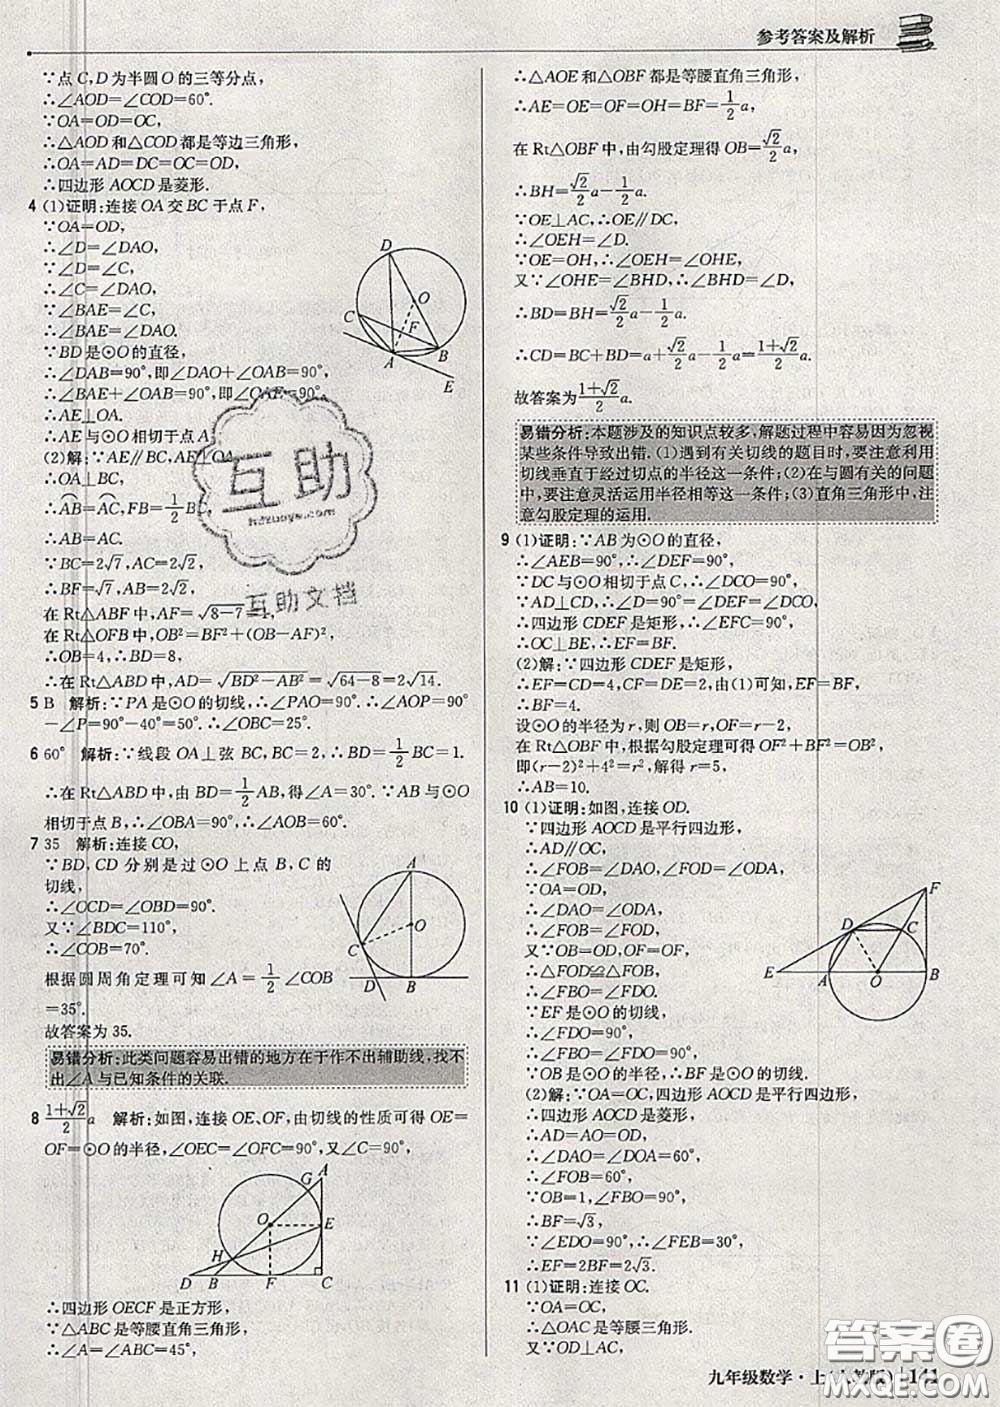 参考答案及解析
∵点C,D为半圆O的三等分点,
∴∠AOD=∠COD=60°.
∵OA=OD=OC,
∴△AOD和△COD都是等边三角形,
∴OA=AD=DC=OC=OD,
∴四边形AOCD是菱形.
4 (1)证明:连接OA交BC于点F,
∵OA=OD,
∴∠D=∠DAO,
∵∠D=∠C,
∴∠C=∠DAO,
∵∠BAE=∠C,
∴∠BAE=∠DAO.
∵BD是⊙O的直径,
∴∠DAB=90°,即∠DAO+∠OAB=90°,
∴∠BAE+∠OAB=90°,即∠OAE=90°,
∴AE⊥OA.
∴AE与⊙O相切于点A.
(2)解:∵AE∥BC,AE⊥OA,
∴OA⊥BC,
∴AB=AC,FB=1/2BC,
∴AB=AC.
∵BC=2√7,AC=2√2,
∴BF=√7,AB=2√2,
在Rt△ABF中,AF=√8-7=1,
在Rt△OFB中,OB²=BF²+(OB-AF)²,
∴OB=4,∴BD=8,
∴在Rt△ABD中,AD=√BD²-AB²=√64-8=2√14.
5 B 解析:∵PA是⊙O的切线,∴∠PAO=90°.∴∠AOP=90°
-∠P=90°-40°=50°.∴∠OBC=25°.
6 60° 解析:∵线段OA⊥弦BC,BC=2,∴BD=1/2BC=1.
∴在Rt△ABD中,由BD=1/2AB,得∠A=30°.∵AB与⊙O
相切于点B,∴∠OBA=90°.∴∠AOB=60°.
7 35 解析:连接CO,
∵BD,CD分别是过⊙O上点B,C的
切线,
∴∠OCD=∠OBD=90°.
又∵∠BDC=110°,
∴∠COB=70°.
根据圆周角定理可知∠A=1/2∠COB
=35°.
故答案为35.
A
O
C
D
B
易错分析:此类问题容易出错的地方在于作不出辅助线,找不
出∠A与已知条件的关联.
8 (1+√2)/2 a 解析:如图,连接OE、OF,由切线的性质可得OE=
OF=⊙O的半径,∠OEC=∠OFC=90°,又∠C=90°,
A
G
O
E
H
D
B
F
C
∴四边形OECF是正方形,
∵△ABC是等腰直角三角形,
∴∠A=∠ABC=45°,
D
O
C
F
A
B
E
∴△AOE和△OBF都是等腰直角三角形,
∴AE=OE=OF=OH=BF=1/2a,
在Rt△OBF中,由勾股定理得OB=√2/2a,
∴BH=√2/2a-1/2a.
∵OE⊥AC,∴OE∥DC,
∴∠OEH=∠D.
∵OE=OH,∴∠OEH=∠OHE,
又∵∠OHE=∠BHD,∴∠BHD=∠D,
∴BD=BH=√2/2a-1/2a,
∴CD=BC+BD=a+√2/2a-1/2a=(1+√2)/2a.
故答案为(1+√2)/2a.
易错分析:本题涉及的知识点较多,解题过程中容易因为忽视
某些条件导致出错.(1)遇到有关切线的题目时,要注意利用
切线垂直于经过切点的半径这一条件;(2)在与圆有关的问题
中,要注意灵活运用半径相等这一条件;(3)直角三角形中,注
意勾股定理的运用.
9 (1)证明:∵AB为⊙O的直径,
∴∠AEB=90°,∴∠DEF=90°,
∵DC与⊙O相切于点C,∴∠DCO=90°,
∵AD⊥CD,∴∠D=90°,∴∠D=∠DEF=∠DCO,
∴四边形CDEF是矩形,∴∠EFC=90°,
∴OC⊥BE,∴EF=BF.
(2)解:∵四边形CDEF是矩形,
∴EF=CD=4,CF=DE=2,由(1)可知,EF=BF,
∴BF=4.
设⊙O的半径为r,则OB=r,OF=r-2,
在Rt△OBF中,根据勾股定理可得OF²+BF²=OB²,
即(r-2)²+4²=r²,解得r=5,
∴AB=10.
10 (1)证明:如图,连接OD.
∵四边形AOCD是平行四边形,
∴AD∥OC,
∴∠FOB=∠DAO,∠FOD=∠ODA,
∵OA=OD,
∴∠DAO=∠ODA,
∴∠FOB=∠FOD,
又∵OB=OD,OF=OF,
∴△FOD≌△FOB,
∴∠FBO=∠FDO.
∵EF是⊙O的切线,
∴∠FDO=90°,
∴∠FBO=90°,
∵OB是⊙O的半径,∴BF是⊙O的切线.
(2)解:∵OA=OC,四边形AOCD是平行四边形,
∴四边形AOCD是菱形,
∴AD=AO=OD,
∴∠DAO=∠DOA=60°,
∴∠FOB=60°,
∵OB=1,∠FBO=90°,
∴BF=√3,
∵∠EDO=90°,∴∠FEB=30°,
∴EF=2BF=2√3.
F
D
C
E
A
O
B
11 (1)证明:连接OC.
∵OA=OC,
∴△OAC是等腰三角形,
∵OF⊥AC,
九年级数学·上(人教版) 141
互助
hdzuoye.com
互助文档
答案圈
MXQE.COM